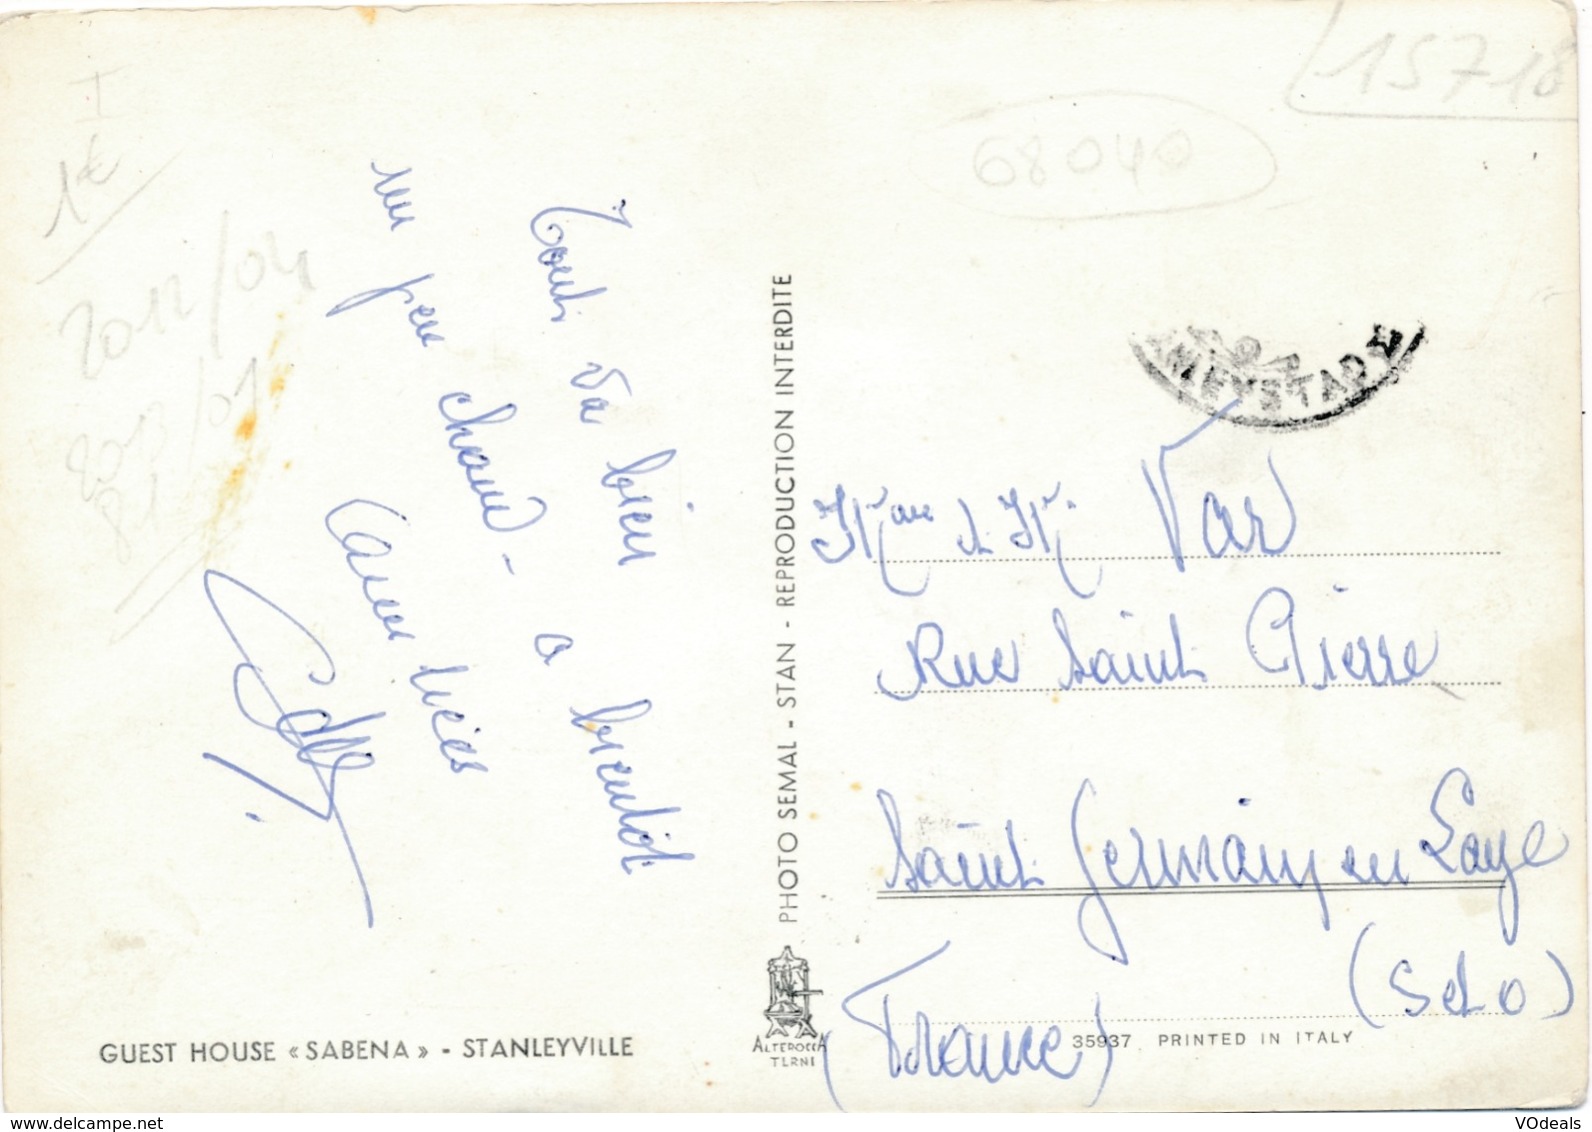 I
1€
2012/04
2013/01
81
15718
68040
Tout va bien
un peu chaud - a bientôt
Amitiés
PHOTO SEMAL - STAN - REPRODUCTION INTERDITE
Mme et Mr Var
Rue Saint Pierre
Saint Germain en Laye
(S et O)
(France)
GUEST HOUSE «SABENA» - STANLEYVILLE
ALTEROCCA
TERNI
35937 PRINTED IN ITALY
www.delcampe.net
VOdeals